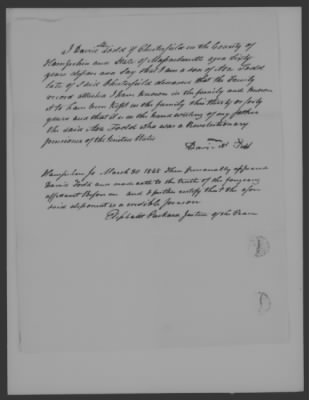 I David Todd of Chesterfield in the County of
Hampshire and State of Massachusetts aged sixty
years depose and say that I am a son of Asa Todd
late of said Chesterfield deceased that the family
record attached I have known in the family and known
it to have been kept in the family this thirty or forty
years and that it is in the hand writing of my father
the said Asa Todd who was a Revolutionary
pensioner of the United States
David Todd
Hampshire Ss March 30 Then personally appeared
David Todd and made oath to the truth of the foregoing
affidavit Before me and I further certify that the afore
said deponent is a credible person
Justice of the Peace